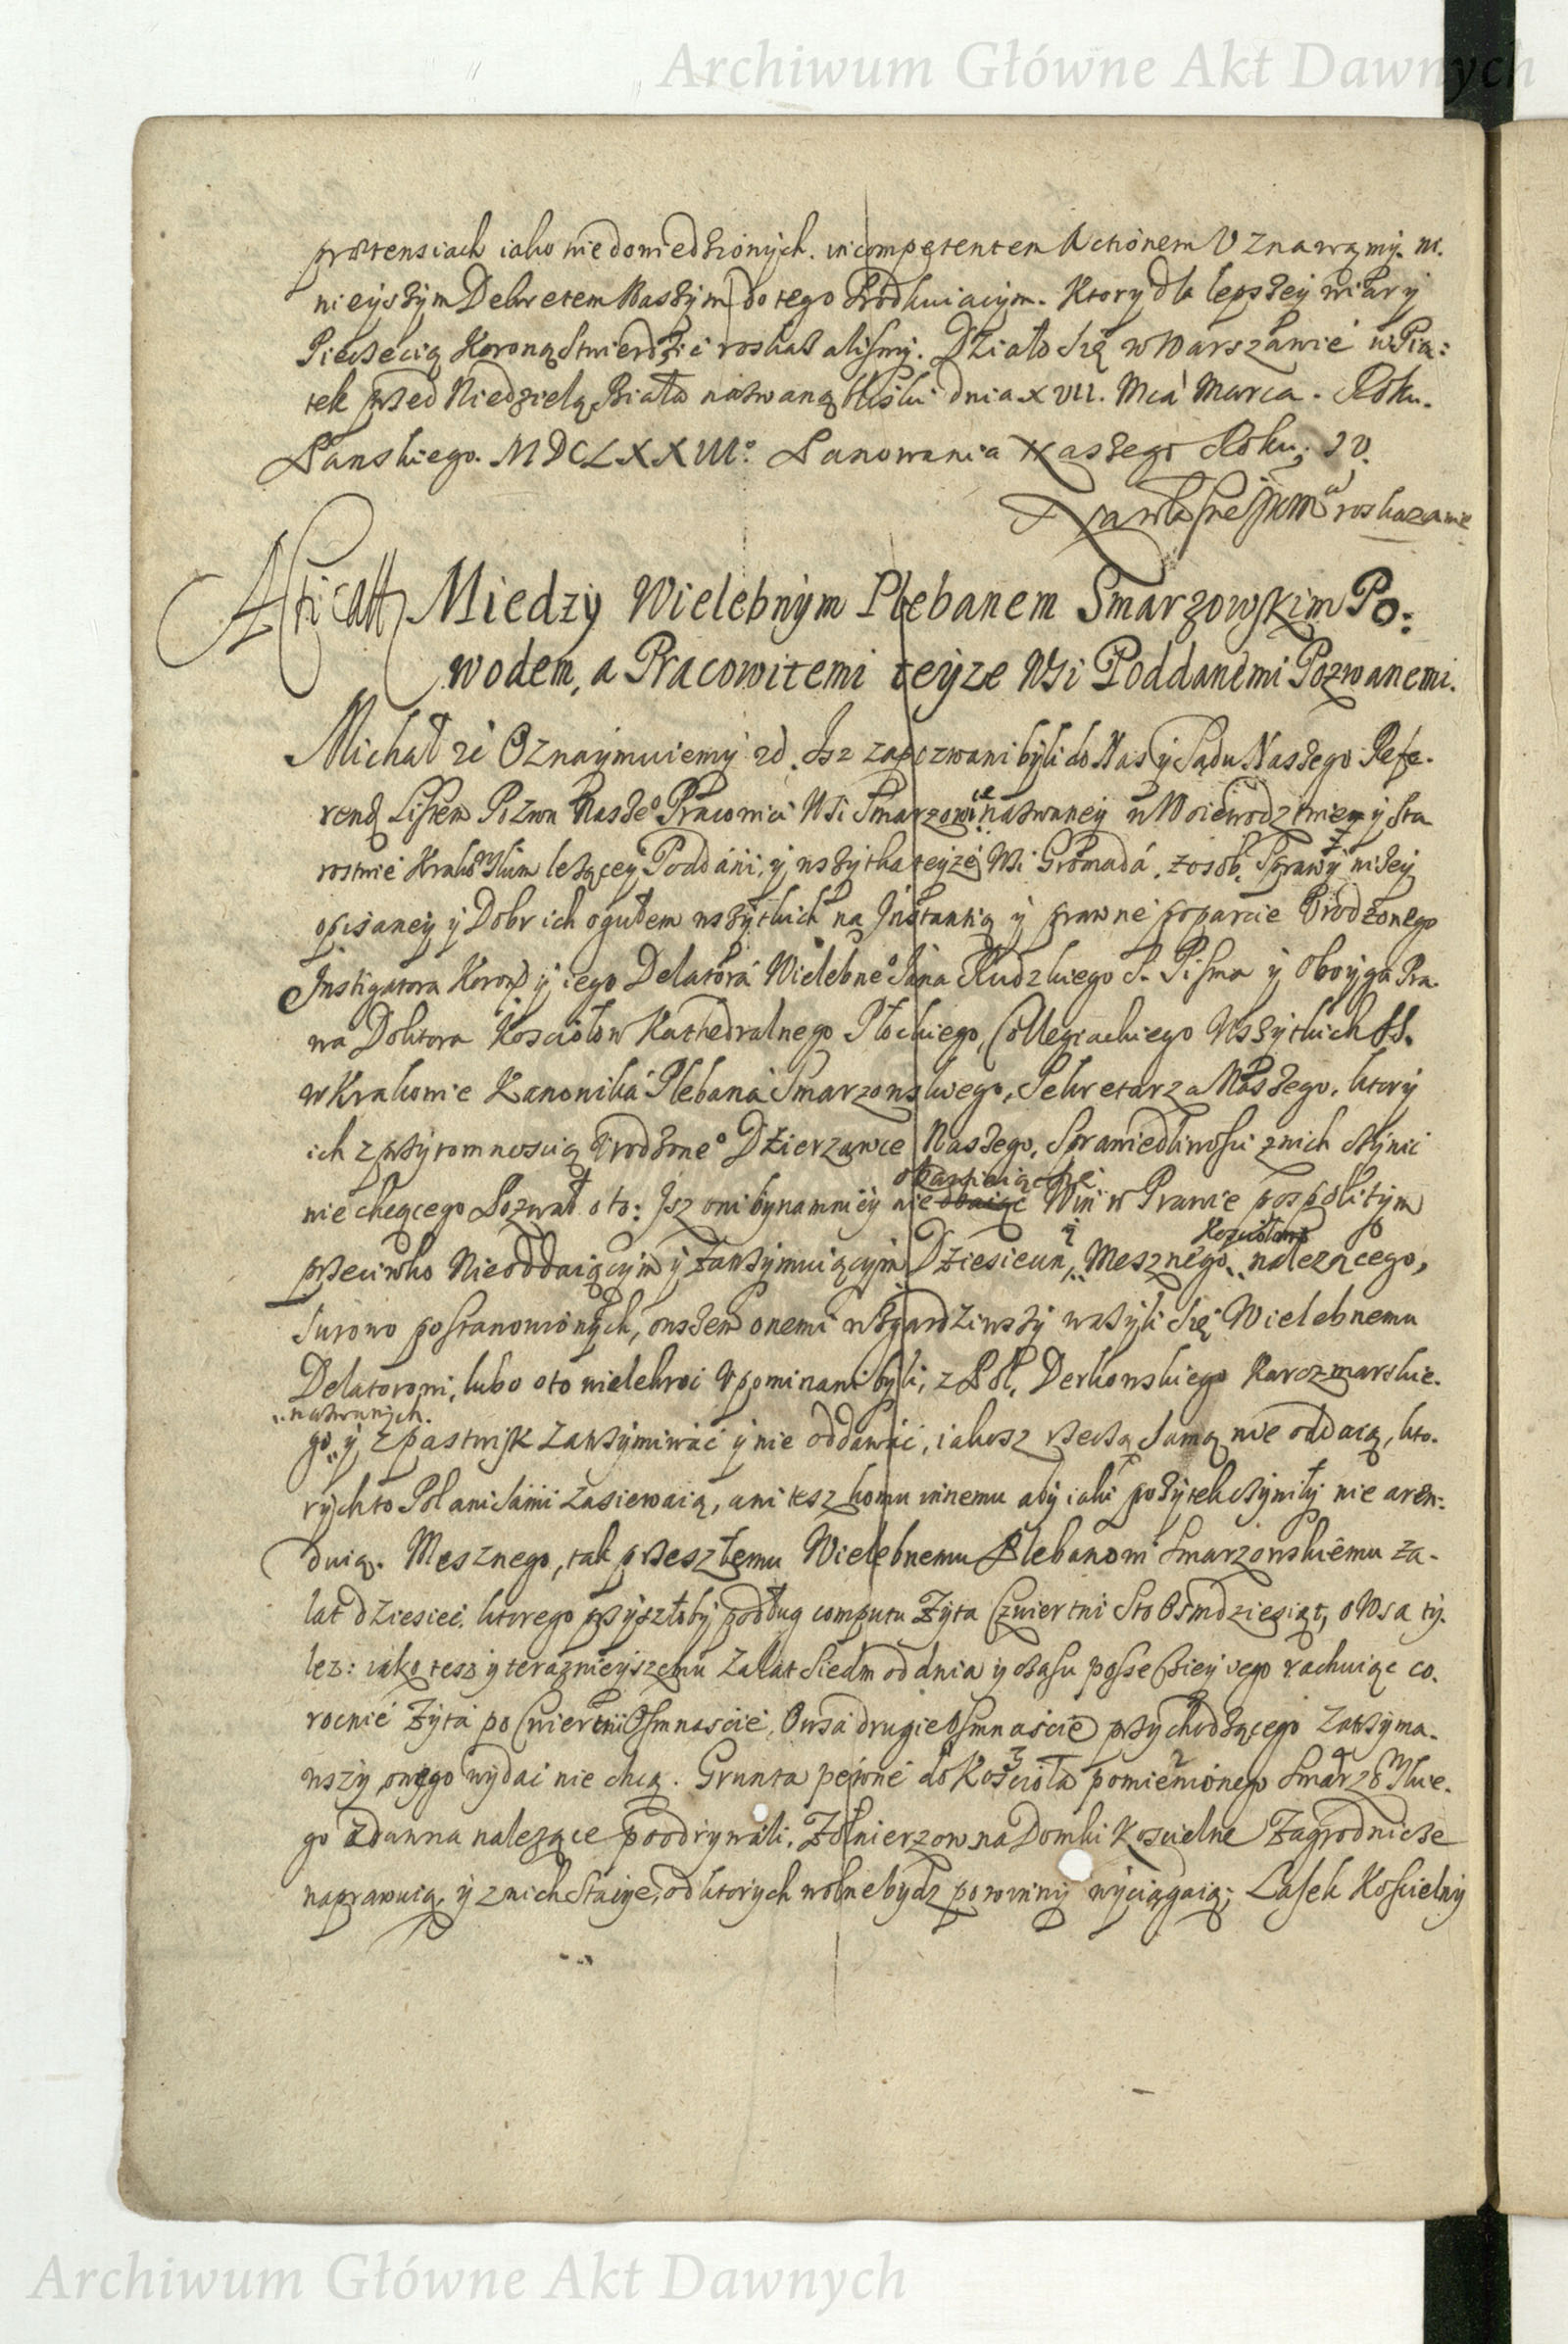 Archiwum Główne Akt Dawnych
prætensiach iako niedowiedzionych. incompetentem Actionem Uznawamy. ni.
nieyszym Dekretem Naszym do tego srodkuiącym. Ktory dla lepszey wiary
Pieczęcią Koronną stwierdzić roskazalismy. Działo się w Warszawie w Pią:
tek przed Niedzielą Białą nazwaną bliski dnia XVII. Mca Marca. Roku.
Panskiego. MDCLXXIII. Panowania Naszego Roku. IV.
roskazanie
Między Wielebnym Plebanem Smarzowskim Po:
wodem, a Pracowitemi teyze Wsi Poddanemi Pozwanemi.
Michał zć Oznaymuiemy zd. Isz zapozwani byli do Nas y Sądu Naszego Refe.
rend Listem Pozwu Nasze° Pracowici Wsi Smarzowice nazwaney w Woiewodztwie y Sta
rostwie Krakowskim leżącey Poddani, y wszytka teyze Wsi Gromada, z osob, Sprawy niżey
opisaney y Dobr ich ogułem wszytkich na Instantią y prawne poparcie Urodzonego
Instigatora Koron y iego Delatora Wielebne° Jana Rudzkiego S. Pisma y oboyga Pra.
wa Doktora Kosciołow Kathedralnego Płockiego, Collegiackiego Wszytkich SS.
w Krakowie Kanonika Plebana Smarzowskiego, Sekretarza Naszego, ktory
ich z przytomnoscią Urodzone° Dzierzawce Naszego, Sprawiedliwosci z nich czynić
nie chcącego Pozwał oto: Isz oni bynamniey nie obawiaiąc się Win w Prawie pospolitym
przeciwko Nieoddaiącym y Zatrzymuiącym Dziesiecin, y Mesznego, Kosciołowi nalezącego,
surowo postanowionych, owszem onemi wzgardziwszy wazyli się Wielebnemu
Delatorowi, lubo oto wielekroć Upominani byli, z Pol, Derkowskiego Karczmarskie.
go nazwanych. y z pastwisk Zatrzymiwać y nie oddawać, iakosz rzeczą samą nie oddaią, kto.
rych to Pol ani sami Zasiewaią, ani tesz komu innemu aby iaki pozytek czyniły nie aren:
duią. Mesznego, tak przeszłemu Wielebnemu Plebanowi Smarzowskiemu za.
lat dziesięć, ktorego przyszłoby podług computu Zyta Czwiertni Sto Osmdziesiąt, Owsa ty.
lez: iako tesz y teraznieyszemu Za lat Siedm od dnia y czasu possessiey iego rachuiąc co.
rocnie Zyta po Cwiertni Osmnascie, Owsa drugie Osmnascie przychodzącego Zatrzyma.
wszy onego wydać nie chcą. Grunta pewne do Kosciola pomienionego Smarzowskie.
go zdawna nalezące poodrywali, Zołnierzow na Domki Koscielne Zagrodnicze
naprawuią, y z nich stacye, od ktorych wolne bydz powinny wyciągaią; Lasek Koscielny
Archiwum Główne Akt Dawnych